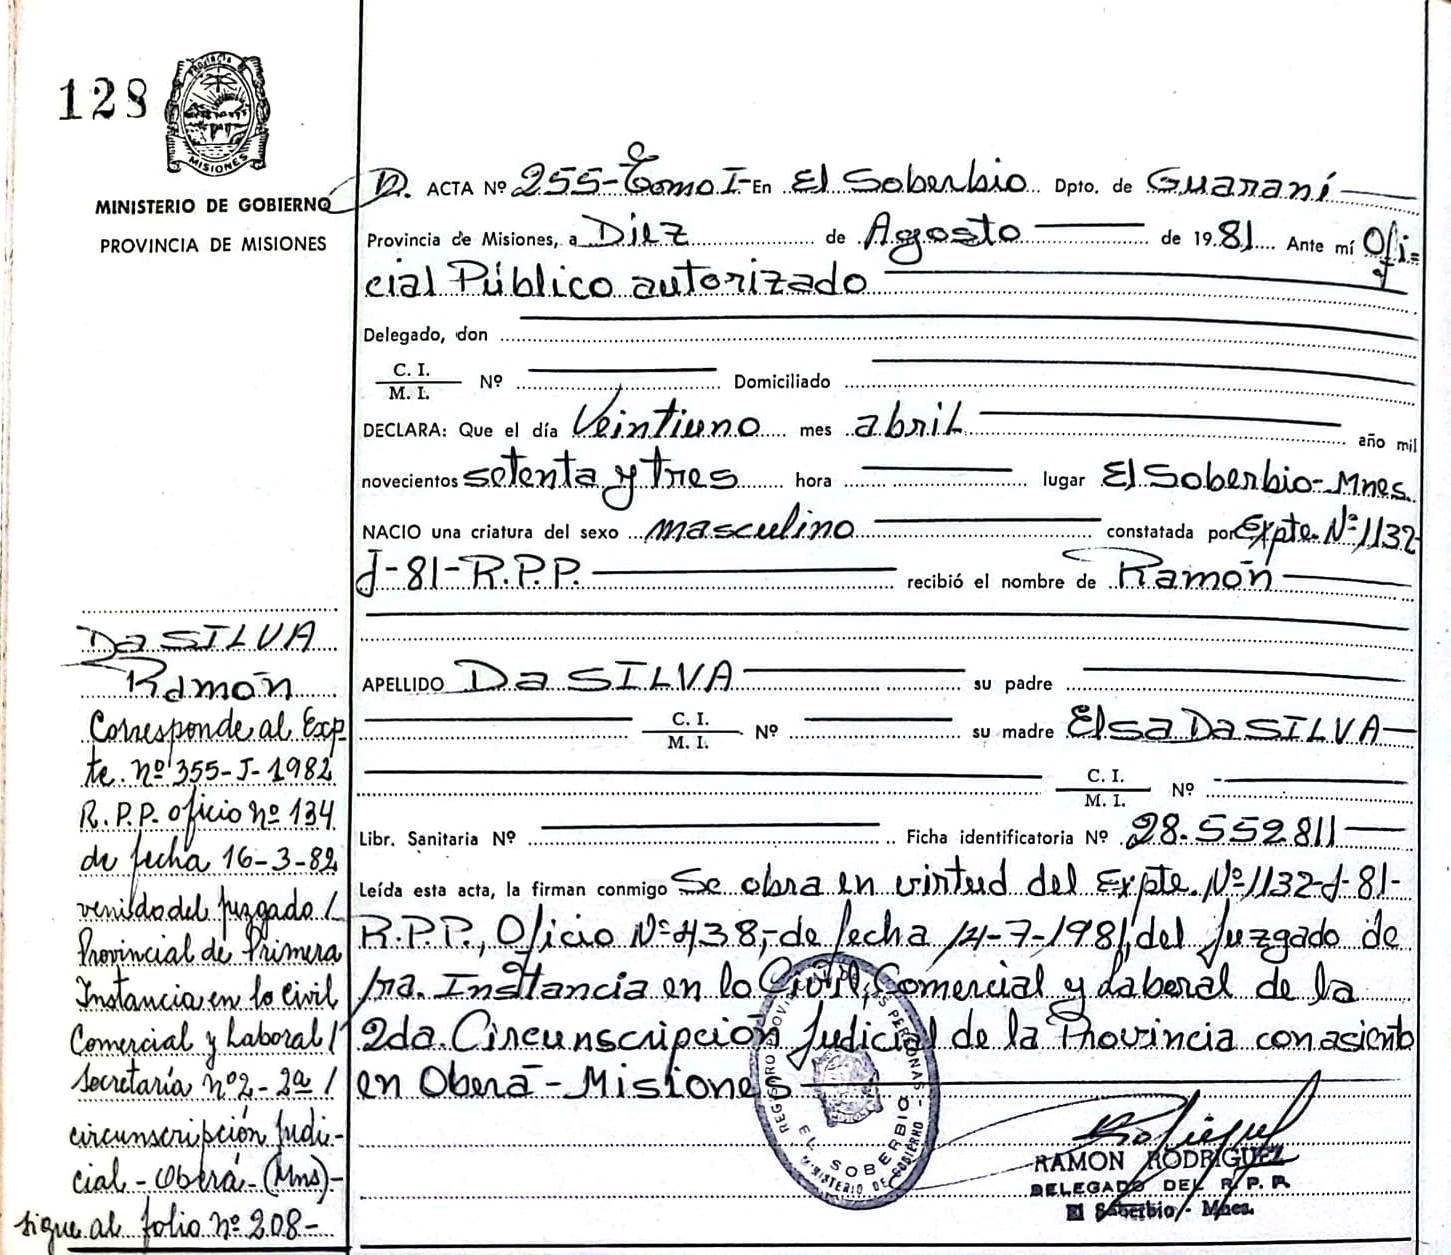 128
Provincia de
MISIONES
MINISTERIO DE GOBIERNO
PROVINCIA DE MISIONES
D. ACTA Nº 255-Tomo I-En El Soberbio Dpto. de Guaraní
Provincia de Misiones, a Diez de Agosto de 1981 Ante mí Ofi=
cial Público autorizado
Delegado, don
C. I.
M. I. Nº Domiciliado
DECLARA: Que el día Veintiuno mes abril año mil
novecientos setenta y tres hora lugar El Soberbio-Mnes.
NACIO una criatura del sexo masculino constatada por Expte. Nº 1132-
J-81-R.P.P. recibió el nombre de Ramón
APELLIDO Da SILVA su padre
C. I.
M. I. Nº su madre Elsa Da SILVA
C. I.
M. I. Nº
Libr. Sanitaria Nº Ficha identificatoria Nº 28.552.811
Leída esta acta, la firman conmigo Se obra en virtud del Expte. Nº 1132-J-81-
R.P.P., Oficio Nº 438,-de fecha 14-7-1981, del Juzgado de
1ra. Instancia en lo Civil, Comercial y Laboral de la
2da. Circunscripción Judicial de la Provincia con asiento
en Oberá-Misiones
Da SILVA
Ramón
Corresponde al Exp-
te. nº 355-J-1982
R.P.P. oficio nº 134
de fecha 16-3-82
venido del juzgado/
Provincial de Primera
Instancia en lo Civil
Comercial y Laboral/
Secretaría nº2-2ª/
circunscripción Judi-
cial-Oberá-(Mns)-
sigue al folio nº 208-
REGISTRO PROVINCIAL DE LAS PERSONAS -
EL SOBERBIO
MINISTERIO DE GOBIERNO
RAMON RODRIGUEZ
DELEGADO DEL R. P. P.
El Soberbio - Mnes.